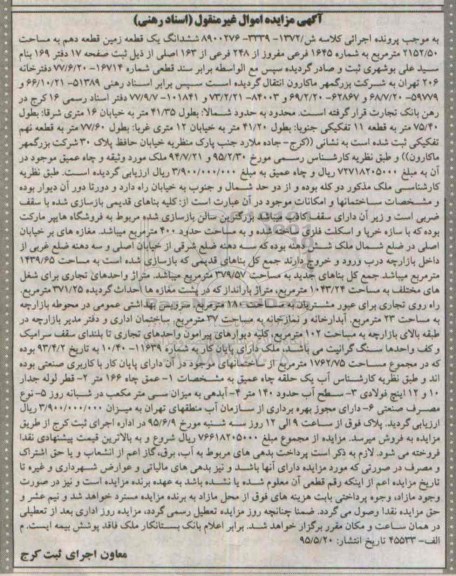 آگهی مزایده اموال غیرمنقول (اسناد رهنی)
به موجب پرونده اجرائی کلاسه ش/۱۳۷۲-۳۳۳۹-۸۹۰۰۲۷۶ ششدانگ یک قطعه زمین قطعه دهم به مساحت
۲۱۵۲/۵۰ مترمربع به شماره ۱۶۴۵ فرعی مفروز از ۲۴۸ فرعی از ۱۶۳ اصلی از ذیل ثبت صفحه ۱۷ دفتر ۱۶۹ بنام
سید علی بوشهری ثبت و صادر گردیده سپس مع الواسطه برابر سند قطعی شماره ۱۶۷۱۴-۷۷/۶/۲۰ دفترخانه
۲۰۶ تهران به شرکت بزرگمهر ماکارون انتقال گردیده است سپس برابر اسناد رهنی ۵۱۳۸۹-۶۶/۱۰/۲۱ و
۵۹۷۷۹-۶۸/۷/۲۰ و ۶۲۸۶۷-۶۹/۲/۲۰ و ۸۴۰۰۳-۷۳/۲/۲۱ و ۱۰۱۸۴۱-۷۷/۹/۷ دفتر اسناد رسمی ۱۶ کرج در
رهن بانک تجارت قرار گرفته است. محدود به حدود شمالا: بطول ۴۱/۳۵ متر به خیابان ۱۶ متری شرقا: بطول
۷۵/۴۰ متر به قطعه ۱۱ تفکیکی جنوبا: بطول ۴۱/۲۰ متر به خیابان ۱۲ متری غربا: بطول ۷۷/۶۰ متر به قطعه نهم
تفکیکی ثبت شده است به نشانی ((کرج-جاده ملارد جنب پارک منظریه خیابان حافظ پلاک ۳۰ شرکت بزرگمهر
ماکارون)) و طبق نظریه کارشناس رسمی مورخ ۹۵/۲/۳۰ و ۹۴/۷/۲۱ ملک مورد وثیقه و چاه عمیق موجود در
آن به مبلغ ۷۲۷۱۸۲۰۵۰۰۰ ریال و چاه عمیق به مبلغ ۳/۹۰۰/۰۰۰/۰۰۰ ریال ارزیابی گردیده است. طبق نظریه
کارشناسی ملک مذکور دو کله بوده و از دو حد شمال و جنوب به خیابان راه دارد و دورتا دور آن دیوار بوده
و مشخصات ساختمانها و امکانات موجود در آن عبارت است از: کلیه بناهای قدیمی بازسازی شده با سقف
ضربی است و زیر آن دارای سقف کاذب میباشد بزرگترین سالن بازسازی شده مربوط به فروشگاه هایپر مارکت
بوده که با سازه خرپا و اسکلت فلزی ساخته شده و به مساحت حدود ۴۰۰ مترمربع میباشد. مغازه های بر خیابان
اصلی در ضلع شمال ملک شش دهنه بوده که سه دهنه ضلع شرقی از خیابان اصلی و سه دهنه ضلع غربی از
داخل بازارچه درب ورود و خروج دارند جمع کل بناهای قدیمی که بازسازی شده است به مساحت ۱۴۳۹/۶۵
مترمربع میباشد جمع کل بناهای جدید به مساحت ۳۷۹/۵۷ مترمربع میباشد. متراژ واحدهای تجاری برای شغل
های مختلف به مساحت ۱۰۴۳/۲۴ مترمربع، متراژ بارانداز که در پشت مغازه ها احداث گردیده ۳۷۱/۲۵ مترمربع.
راه روی تجاری برای عبور مشتریان به مساحت ۲۸۰ مترمربع، سرویس بهداشتی عمومی در محوطه بازارچه
به مساحت ۲۳ مترمربع. آبدارخانه و نمازخانه به مساحت ۳۷ مترمربع. ساختمان اداری و دفتر مدیر بازارچه در
طبقه بالای بازارچه به مساحت ۱۰۲ مترمربع. کلیه دیوارهای پیرامون واحدهای تجاری تا بلندای سقف سرامیک
و کف واحدها سنگ گرانیت می باشد. ملک دارای پایان کار به شماره ۱۱۶۳۹-۱۰/۴۰ تاریخ ۹۳/۴/۲ بوده
که در مجموع مساحت ۱۷۶۲/۷۵ مترمربع از ساختمانهای موجود در آن دارای پایان کار با کاربری صنعتی بوده
اند و طبق نظریه کارشناس آب یک حلقه چاه عمیق به مشخصات ۱-عمق چاه ۱۶۶ متر ۲- قطر لوله جدار
۱۰ و ۱۲ اینچ فولادی ۳-سطح آب حدود ۱۴۰ متر ۴-آبدهی به میزان سی متر مکعب در شبانه روز ۵-نوع
مصرف صنعتی ۶-دارای مجوز بهره برداری از سازمان آب منطقهای تهران به میزان ۳/۹۰۰/۰۰۰/۰۰۰ ریال
ارزیابی گردید. پلاک فوق از ساعت ۹ الی ۱۲ روز سه شنبه مورخ ۹۵/۶/۹ در اداره اجرای ثبت کرج از طریق
مزایده به فروش میرسد. مزایده از مجموع مبلغ ۷۶۶۱۸۲۰۵۰۰۰ ریال شروع و به بالاترین قیمت پیشنهادی نقدا
فروخته می شود. لازم به ذکر است پرداخت بدهی های مربوط به آب، برق، گاز اعم از انشعاب و یا حق اشتراک
و مصرف در صورتی که مورد مزایده دارای آنها باشد و نیز بدهی های مالیاتی و عوارض شهرداری و غیره تا
تاریخ مزایده اعم از اینکه رقم قطعی آن معلوم شده یا نشده باشد به عهده برنده مزایده است و نیز در صورت
وجود مازاد، وجوه پرداختی بابت هزینه های فوق از محل مازاد به برنده مزایده مسترد خواهد شد و نیم عشر و
حق مزایده نقدا وصول می گردد. ضمنا چنانچه روز مزایده تعطیل رسمی گردد، مزایده روز اداری بعد از تعطیلی
در همان ساعت و مکان مقرر برگزار خواهد شد. برابر اعلام بانک بستانکار ملک فاقد پوشش بیمه ایست. م
الف-۴۵۵۳۳ تاریخ انتشار: ۹۵/۵/۲۰
معاون اجرای ثبت کرج